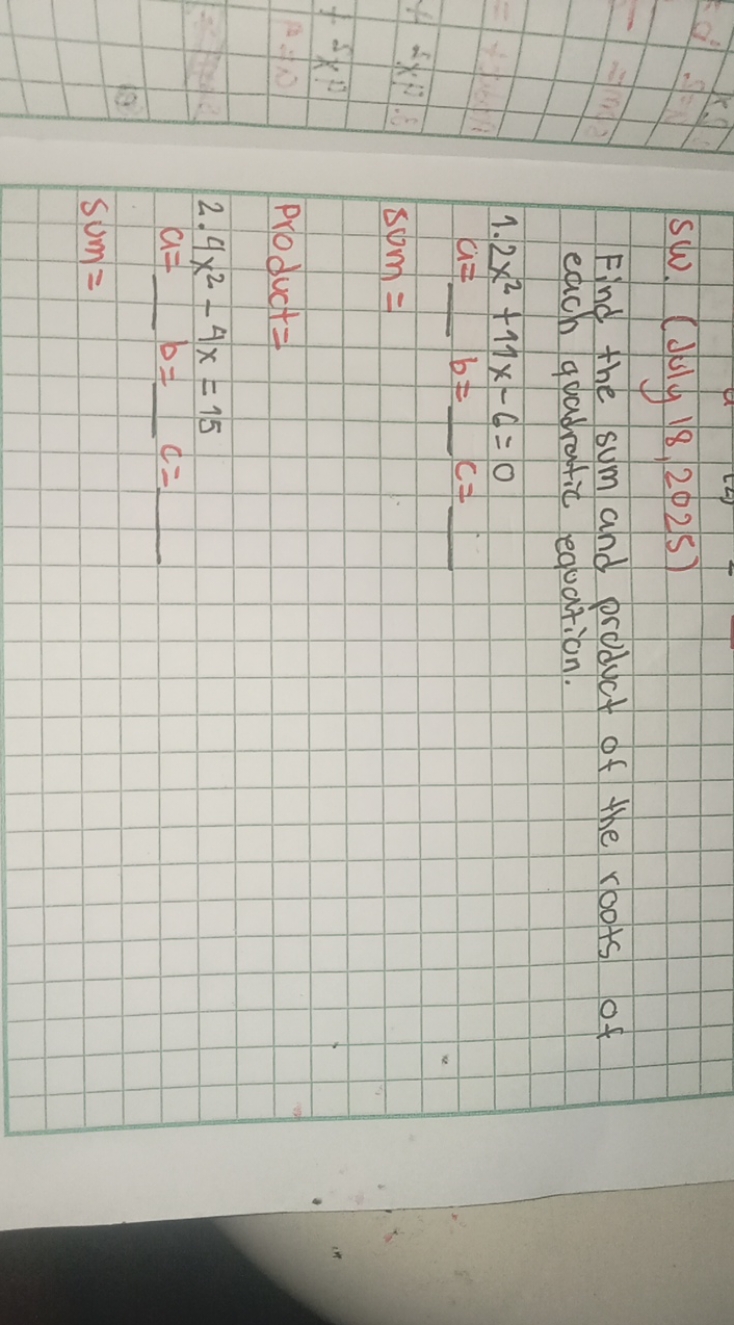 SW. (July 18, 2025)
Find the sum and product of the roots of
each quadratic equation.
1. 2x² + 11x - 6 = 0
a= ___ b= ___ c= ___
sum =
Product =
2. 4x² - 4x = 15
a= ___ b= ___ c= ___
sum =